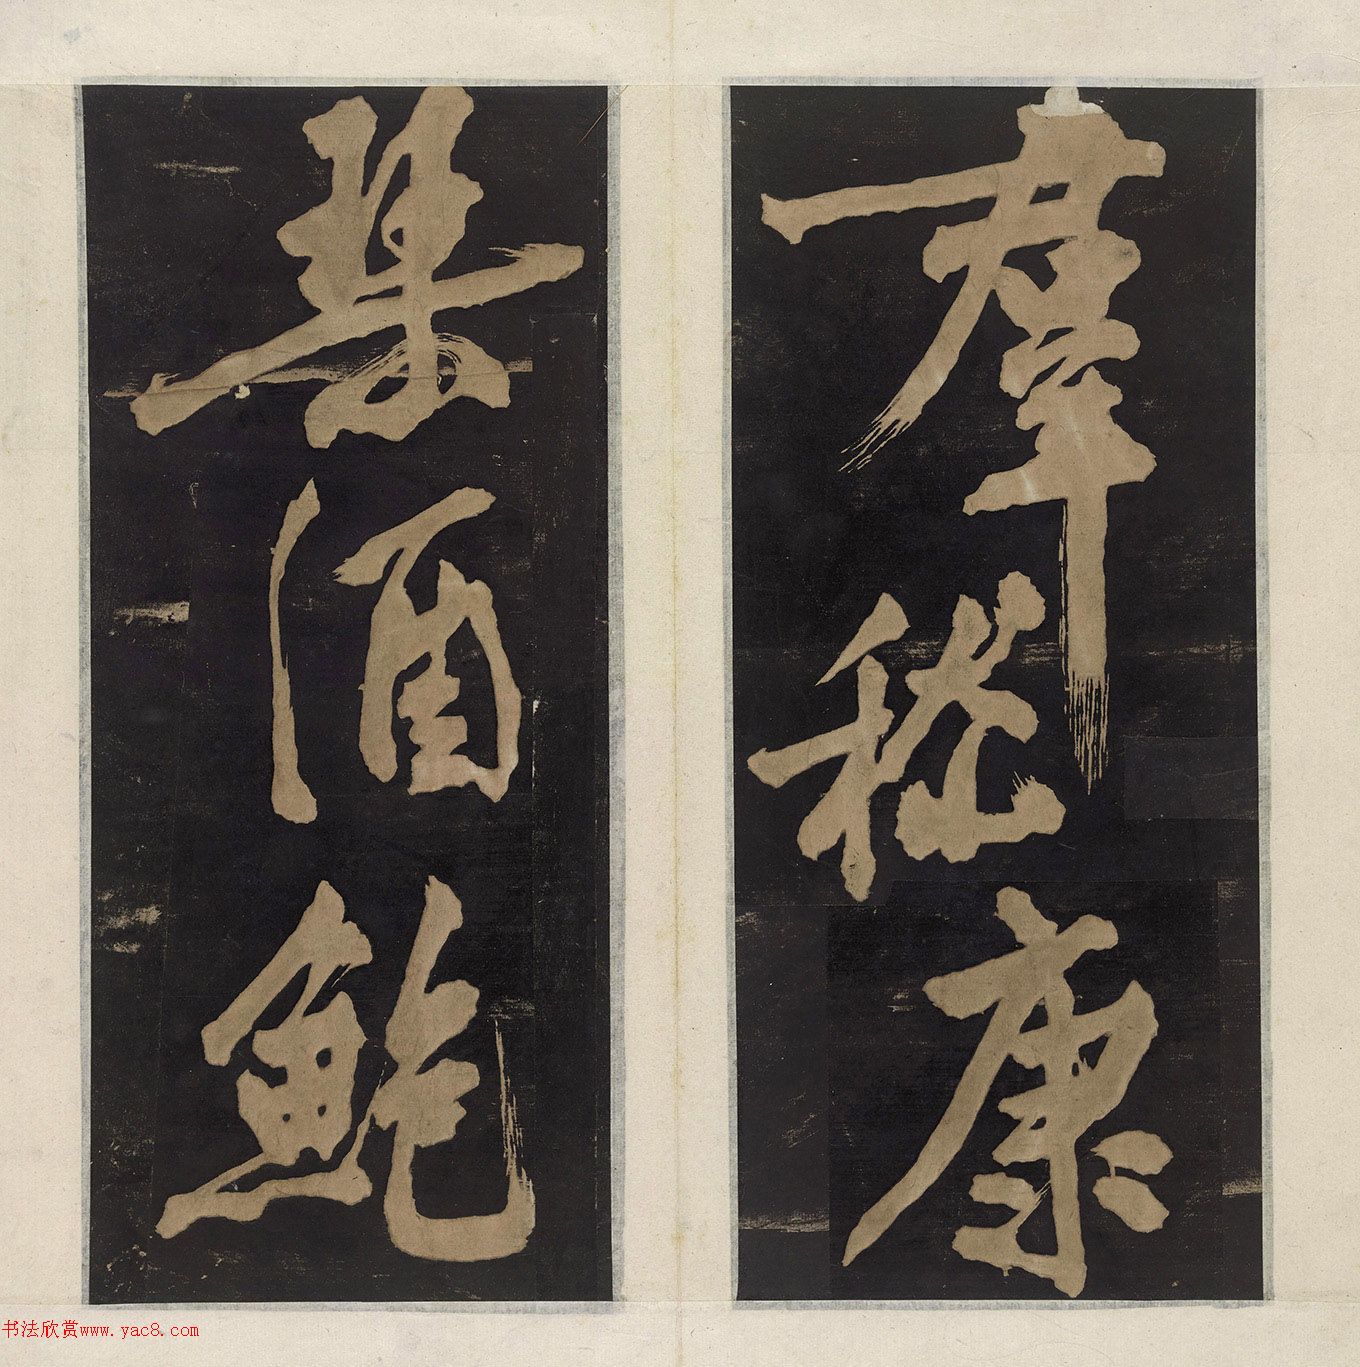 羣嵇康
琹酒鮑
书法欣赏www.yac8.com